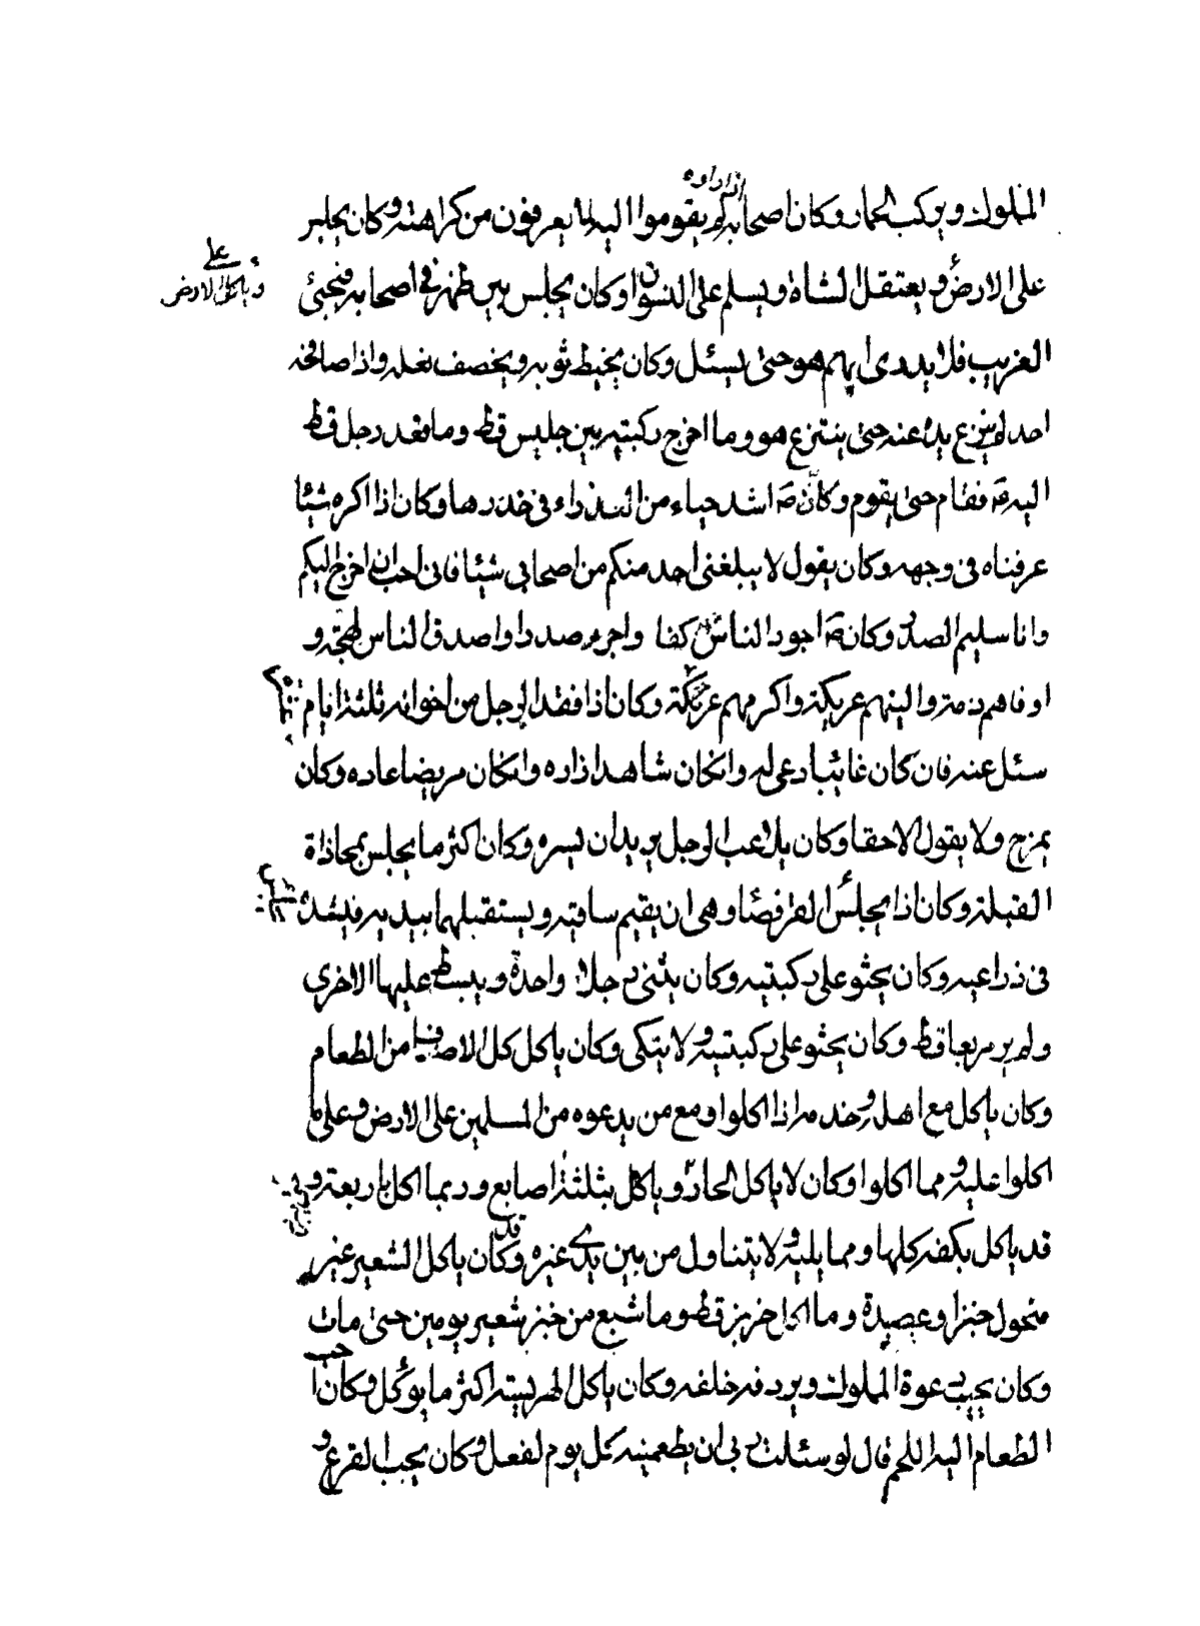 المملوك ويركب الحمار وكان اصحابه لم يقوموا اليه لما يعرفون من كراهته وكان يجلس
اذا راوه
على الارض ويعتقل الشاة ويسلم على النسوان وكان يجلس بين ظهرفي اصحابه فيجيئ
وياكل على الارض
الغريب فلا يدرى ايهم هو حتى يسئل وكان يخيط ثوبه ويخصف نعله واذا صافحه
احد لم ينزع يده عنه حتى ينتزع هو وما اخرج ركبتيه بين جليس قط وما قعد رجل قط
اليه ص فقام حتى يقوم وكان ص اشد حياء من العذراء فى خدرها وكان اذا كره شيئا
عرفناه فى وجهه وكان يقول لا يبلغنى احد منكم من اصحابى شيئا فانى احب ان اخرج اليكم
وانا سليم الصدر وكان ص اجود الناس كفا واجرء صدرا واصدق الناس لهجة و
اوفاهم ذمة والينهم عريكة واكرمهم عريكة وكان اذا فقد الرجل من اخوانه ثلثة ايام
سئل عنه فان كان غائبا دعى له وانكان شاهدا زاره وانكان مريضا عاده وكان
يمزح ولا يقول الا حقا وكان يلاعب الرجل يريد ان يسره وكان اكثر ما يجلس بمحاذاة
القبلة وكان اذا يجلس القرفصا وهى ان يقيم ساقيه ويستقبلهما بيديه فيشد
فى ذراعيه وكان يجثو على ركبتيه وكان يثنى رجلا واحدة ويبسط عليها الاخرى
ولم ير مربعا قط وكان يجثو على ركبتيه ولا يتكى وكان ياكل كل الاصناف من الطعام
وكان ياكل مع اهله وخدمه اذا اكلوا ومع من يدعوه من المسلمين على الارض وعلى ما
اكلوا عليه ومما اكلوا وكان لا ياكل الحار وياكل بثلثة اصابع وربما اكل باربعة و
قد ياكل بكفه كلها ومما يليه ولا يتناول من بين يدى غيره وقد كان ياكل الشعير غير
منخول خبزا وعصيدة وما اكل خبز بر قط وما شبع من خبز شعير يومين حتى مات
وكان يجيب دعوة المملوك ويردفه خلفه وكان ياكل الهريسة اكثر ما يؤكل وكان احب
الطعام اليه اللحم قال لو سئلت ربى ان يطعمنيه كل يوم لفعل وكان يحب القرع و